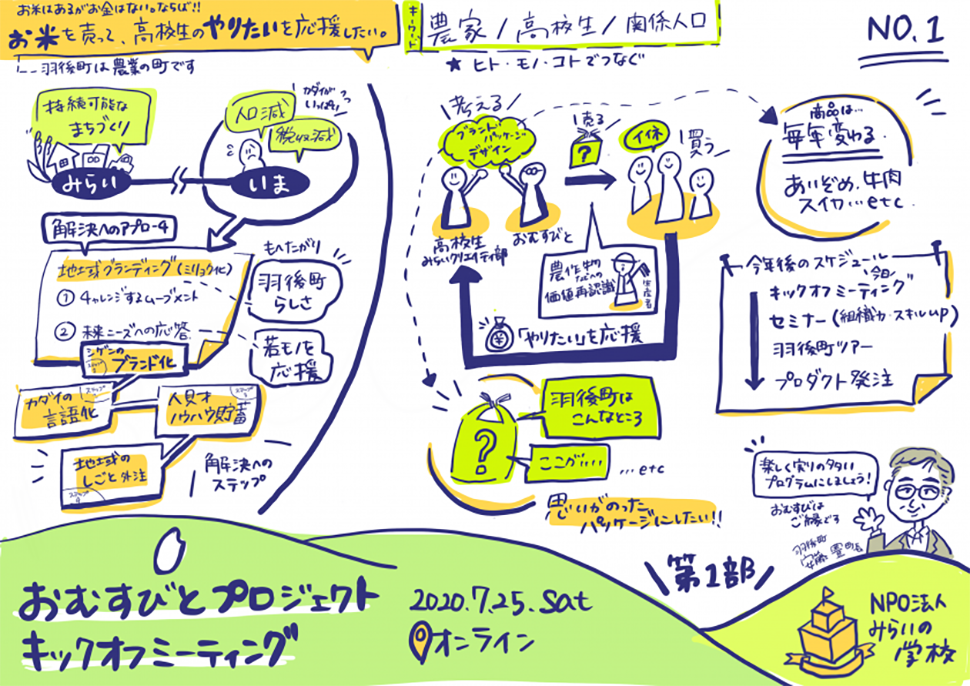 お米はあるがお金はない。ならば!!
お米を売って、高校生のやりたいを応援したい。
羽後町は農業の町です
持続可能な
まちづくり
人口減
税収減
カダイが
いっぱい
みらい
いま
解決へのアプローチ
地域ブランディング(ミリョク化)
① チャレンジするムーブメント
② 未来ニーズへの応答
もへたがり
羽後町
らしさ
若モノを
応援
シゲンの
ブランド化
カダイの
言語化
ステップ
人財才
ノウハウ貯蓄
ステップ
地域の
しごと外注
ステップ
解決への
ステップ
キーワード
農家/高校生/関係人口
★ ヒト・モノ・コトでつなぐ
NO.1
考える
ブランド・パッケージ
デザイン
売る
?
イイネ
買う
高校生
みらいクリエイティ部
おむすびと
農作物
価値再認識
生産者
¥
「やりたい」を応援
?
羽後町は
こんなところ
ここが、、、、
...etc
思いがのった
パッケージにしたい!!
商品は...
毎年変わる
あいぞめ、牛肉
スイカ...etc
今年後のスケジュール
キックオフミーティング
今日
セミナー(組織力・スキルup)
羽後町ツアー
プロダクト発注
楽しく実りの多い
プログラムにしましょう!
おむすびは
羽後町
安藤 豊 町長
第1部
おむすびとプロジェクト
キックオフミーティング
2020.7.25.sat
オンライン
NPO法人
みらいの
学校